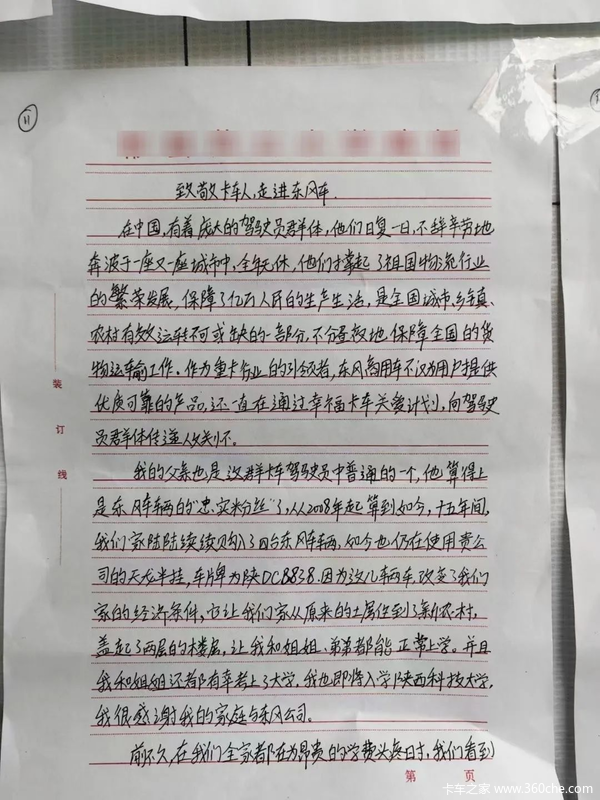 11
致敬卡车人,走进东风车.
在中国,有着庞大的驾驶员群体,他们日复一日,不辞辛劳地
奔波于一座又一座城市中,全年无休,他们撑起了祖国物流行业
的繁荣发展,保障了亿万人民的生产生活,是全国城市、乡镇、
农村有效运转不可或缺的一部分,不分昼夜地保障全国的货
物运输工作。作为重卡行业的引领者,东风商用车不仅为用户提供
优质可靠的产品,还一直在通过幸福卡车关爱计划,向驾驶
员群体传递人文关怀。
我的父亲也是这群卡车驾驶员中普通的一个,他算得上
是东风车辆的“忠实粉丝”了,从2008年起算到如今,十五年间,
我们家陆陆续续购入了四台东风车辆,如今也仍在使用贵公
司的天龙半挂,车牌为陕DC8838.因为这几辆车,改变了我们
家的经济条件,它让我们家从原来的土房住到了新农村,
盖起了两层的楼层,让我和姐姐、弟弟都能正常上学。并且
我和姐姐还都有幸考上了大学,我也即将入学陕西科技大学,
我很感谢我的家庭与东风公司。
前不久,在我们全家都在为昂贵的学费头疼时,我们看到
装
订
线
第 页
卡车之家 www.360che.com